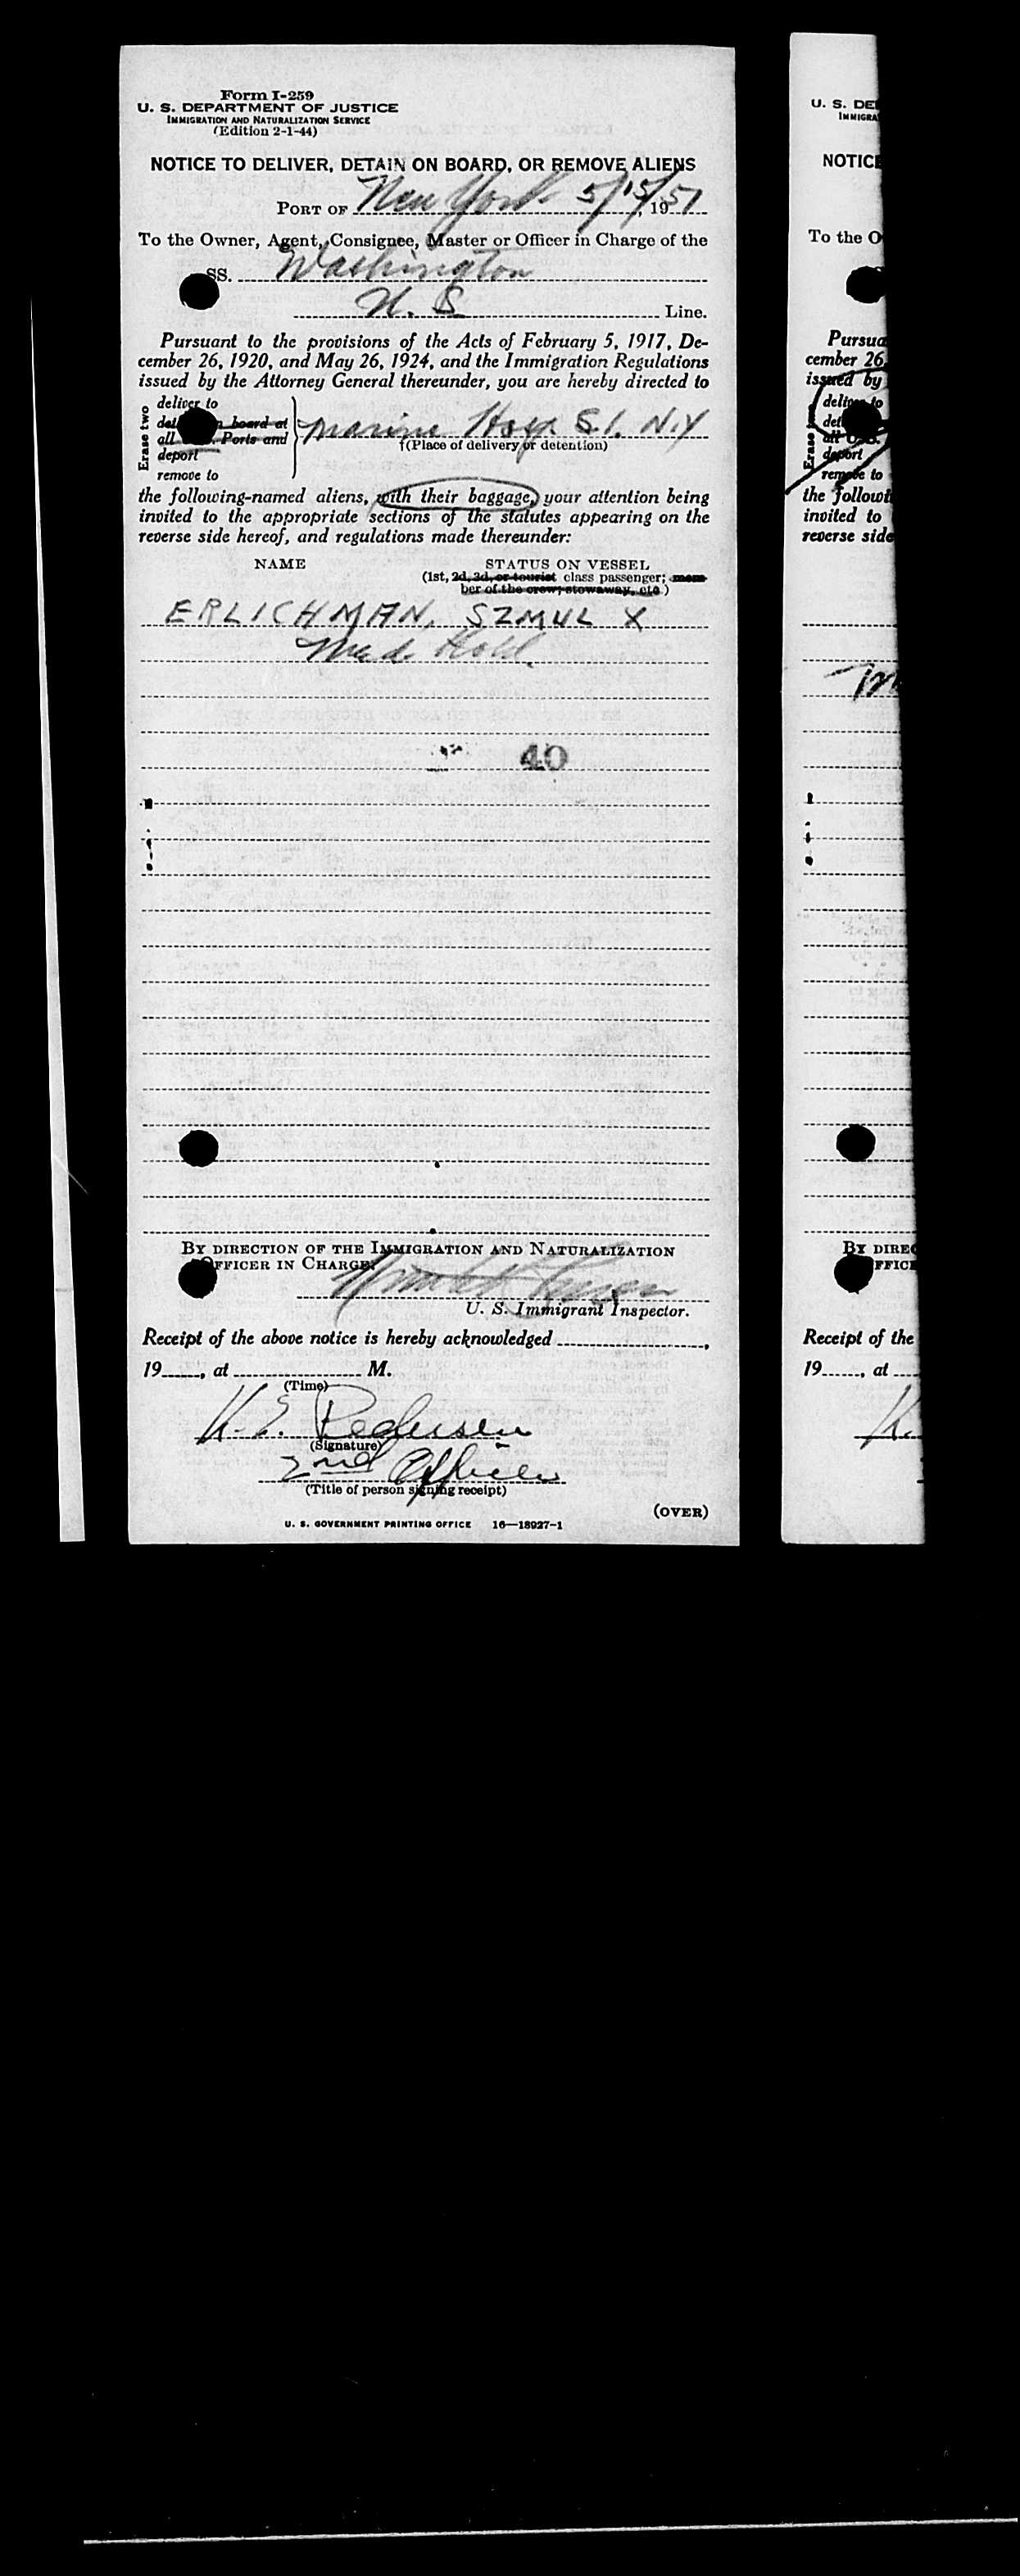 Form I-259
U. S. DEPARTMENT OF JUSTICE
IMMIGRATION AND NATURALIZATION SERVICE
(Edition 2-1-44)
NOTICE TO DELIVER, DETAIN ON BOARD, OR REMOVE ALIENS
PORT OF New York 5/15/, 1951
To the Owner, Agent, Consignee, Master or Officer in Charge of the
SS. Washington
U. S. Line.
Pursuant to the provisions of the Acts of February 5, 1917, De-
cember 26, 1920, and May 26, 1924, and the Immigration Regulations
issued by the Attorney General thereunder, you are hereby directed to
Erase two
deliver to
board at
all Ports and
deport
remove to
Marine Hosp S.I. N.Y
†(Place of delivery or detention)
the following-named aliens, with their baggage, your attention being
invited to the appropriate sections of the statutes appearing on the
reverse side hereof, and regulations made thereunder:
NAME STATUS ON VESSEL
(1st, 2d, 3d, or tourist class passenger; mem-
ber of the crew; stowaway, etc.)
ERLICHMAN, SZMUL X
Med. Hold.
40
BY DIRECTION OF THE IMMIGRATION AND NATURALIZATION
OFFICER IN CHARGE:
U. S. Immigrant Inspector.
Receipt of the above notice is hereby acknowledged ,
19 , at M.
(Time)
K. E. Pedersen
(Signature)
2nd Officer
(Title of person signing receipt)
(OVER)
U. S. GOVERNMENT PRINTING OFFICE 16—18927-1
U. S. DE
IMMIGRA
NOTICE
To the O
Pursua
cember 26
issued by
deliver to
deport
remove to
the followi
invited to
reverse side
BY DIREC
FFICE
Receipt of the
19 , at
K.